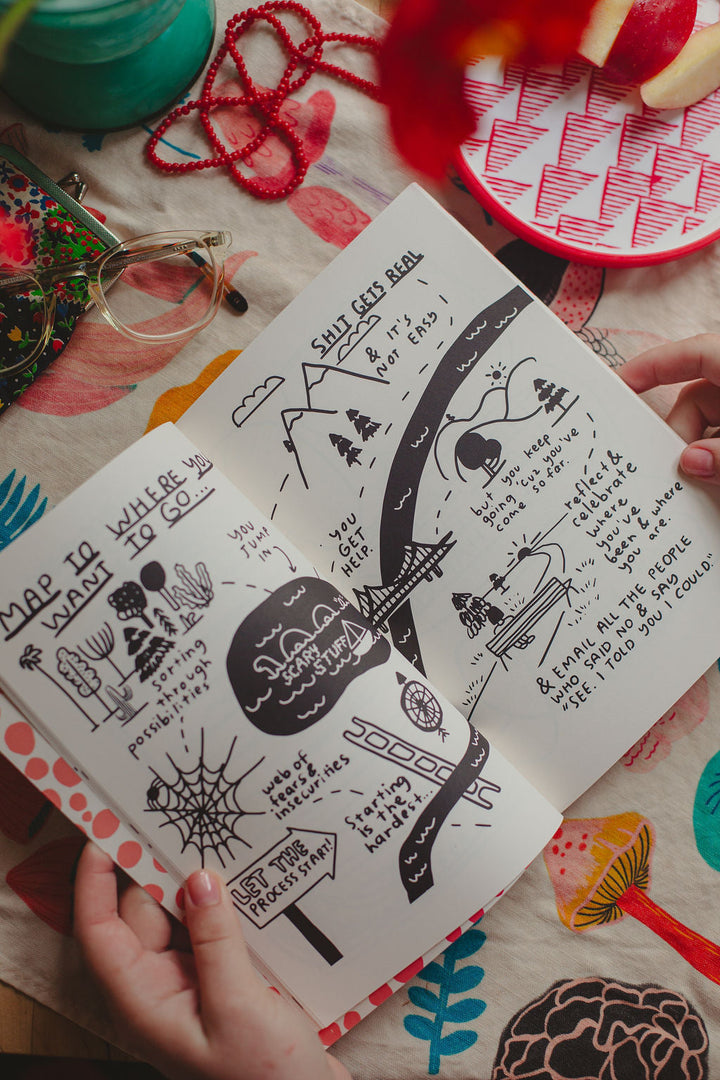 MAP TO WHERE YOU
WANT TO GO...
Sorting
through
possibilities
web of
fears &
insecurities
LET THE
PROCESS START!
Starting
is the
hardest...
YOU
JUMP
IN
SCARY
STUFF
YOU
GET
HELP.
SHIT GETS REAL
& IT'S
NOT EASY
but you keep
going 'cuz you've
come so far.
reflect &
celebrate
where
you've
been & where
you are.
& EMAIL ALL THE PEOPLE
WHO SAID NO & SAY
"SEE. I TOLD YOU I COULD."